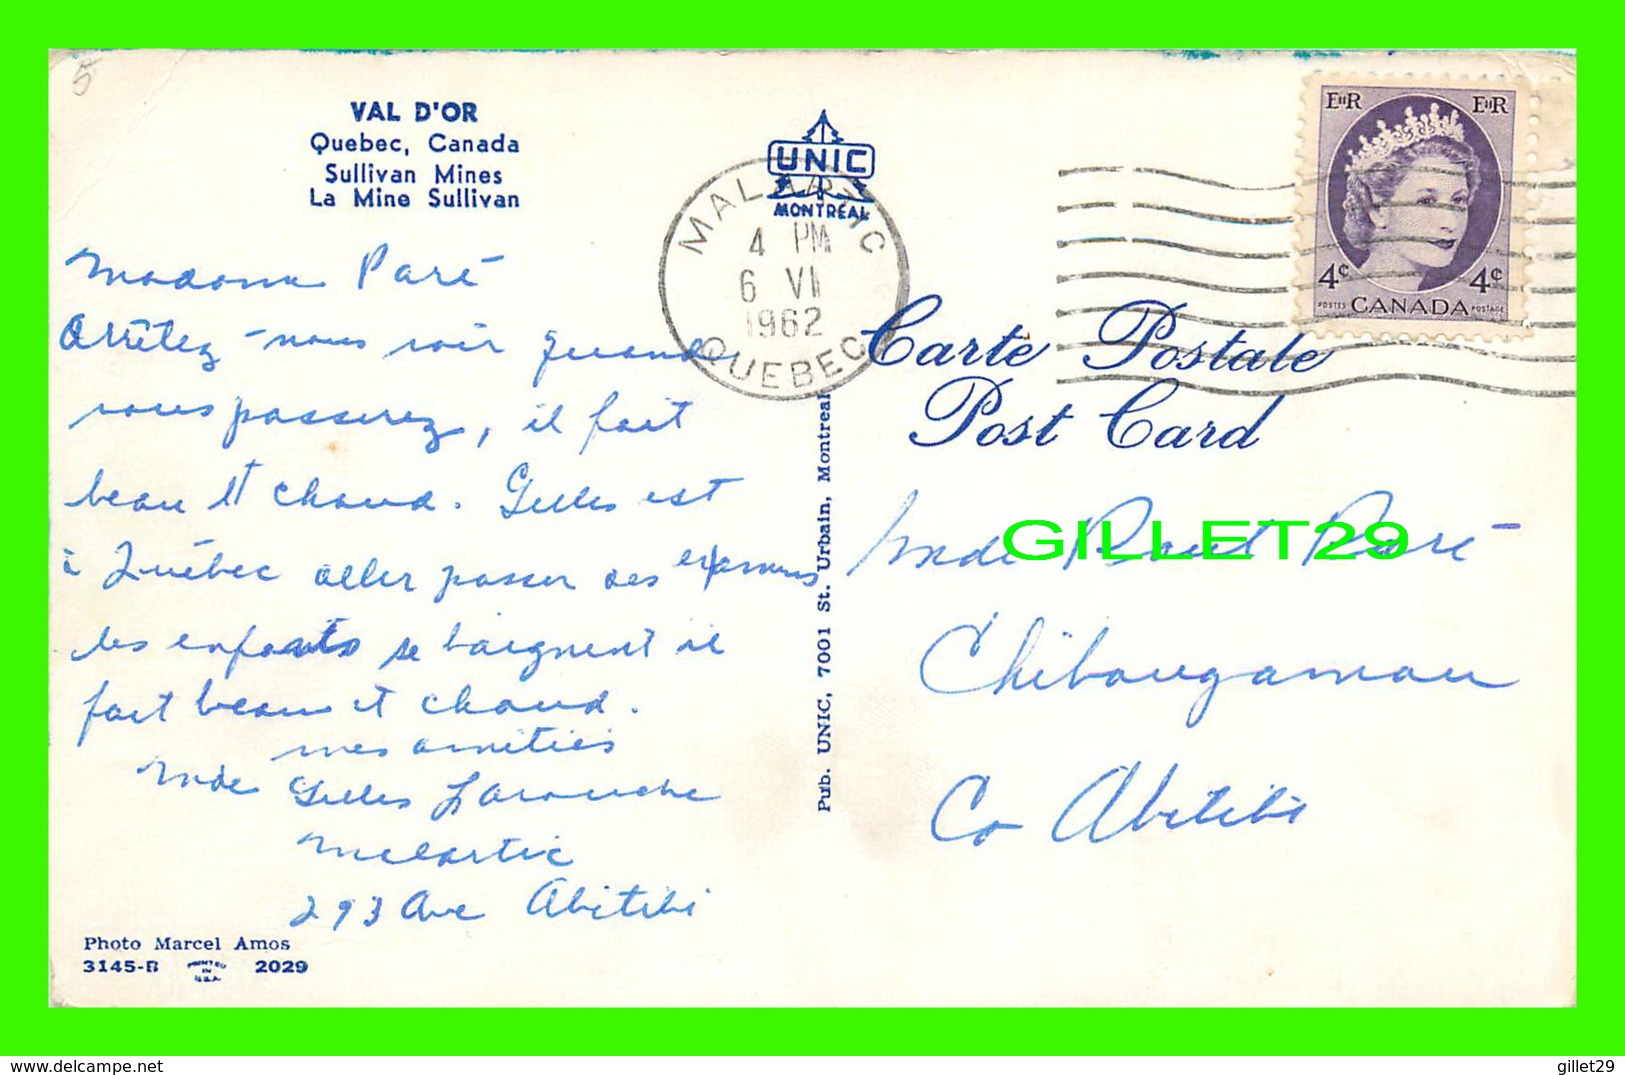 5
VAL D'OR
Quebec, Canada
Sullivan Mines
La Mine Sullivan
UNIC
MONTREAL
MALARTIC
4 PM
6 VI
1962
QUEBEC
EIIR EIIR
4¢ 4¢
POSTES CANADA POSTAGE
Carte Postale
Post Card
Madame Paré
Arrêtez-nous voir quand
vous passerez, il fait
beau et chaud. Gilles est
à Québec aller passer des examens
les enfants se baignent il
fait beau et chaud.
mes amitiés
Mde Gilles Larouche
Malartic
293 Ave Abitibi
Photo Marcel Amos
3145-B PRINTED IN U.S.A. 2029
Pub. UNIC, 7001 St. Urbain, Montreal
Mde Raul Paré
Chibougamau
Co Abitibi
GILLET29
delcampe.net
gillet29